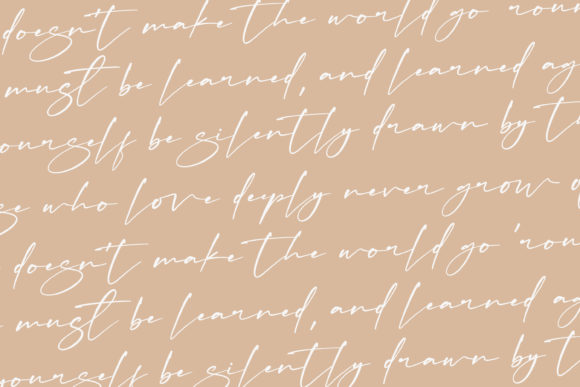 doesn't make the world go 'roun
must be learned, and learned ag
ourself be silently drawn by th
se who love deeply never grow o
doesn't make the world go 'roun
must be learned, and learned ag
yourself be silently drawn by t